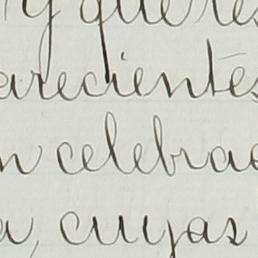 y que les
arecientes
n celebrac
a, cuyas